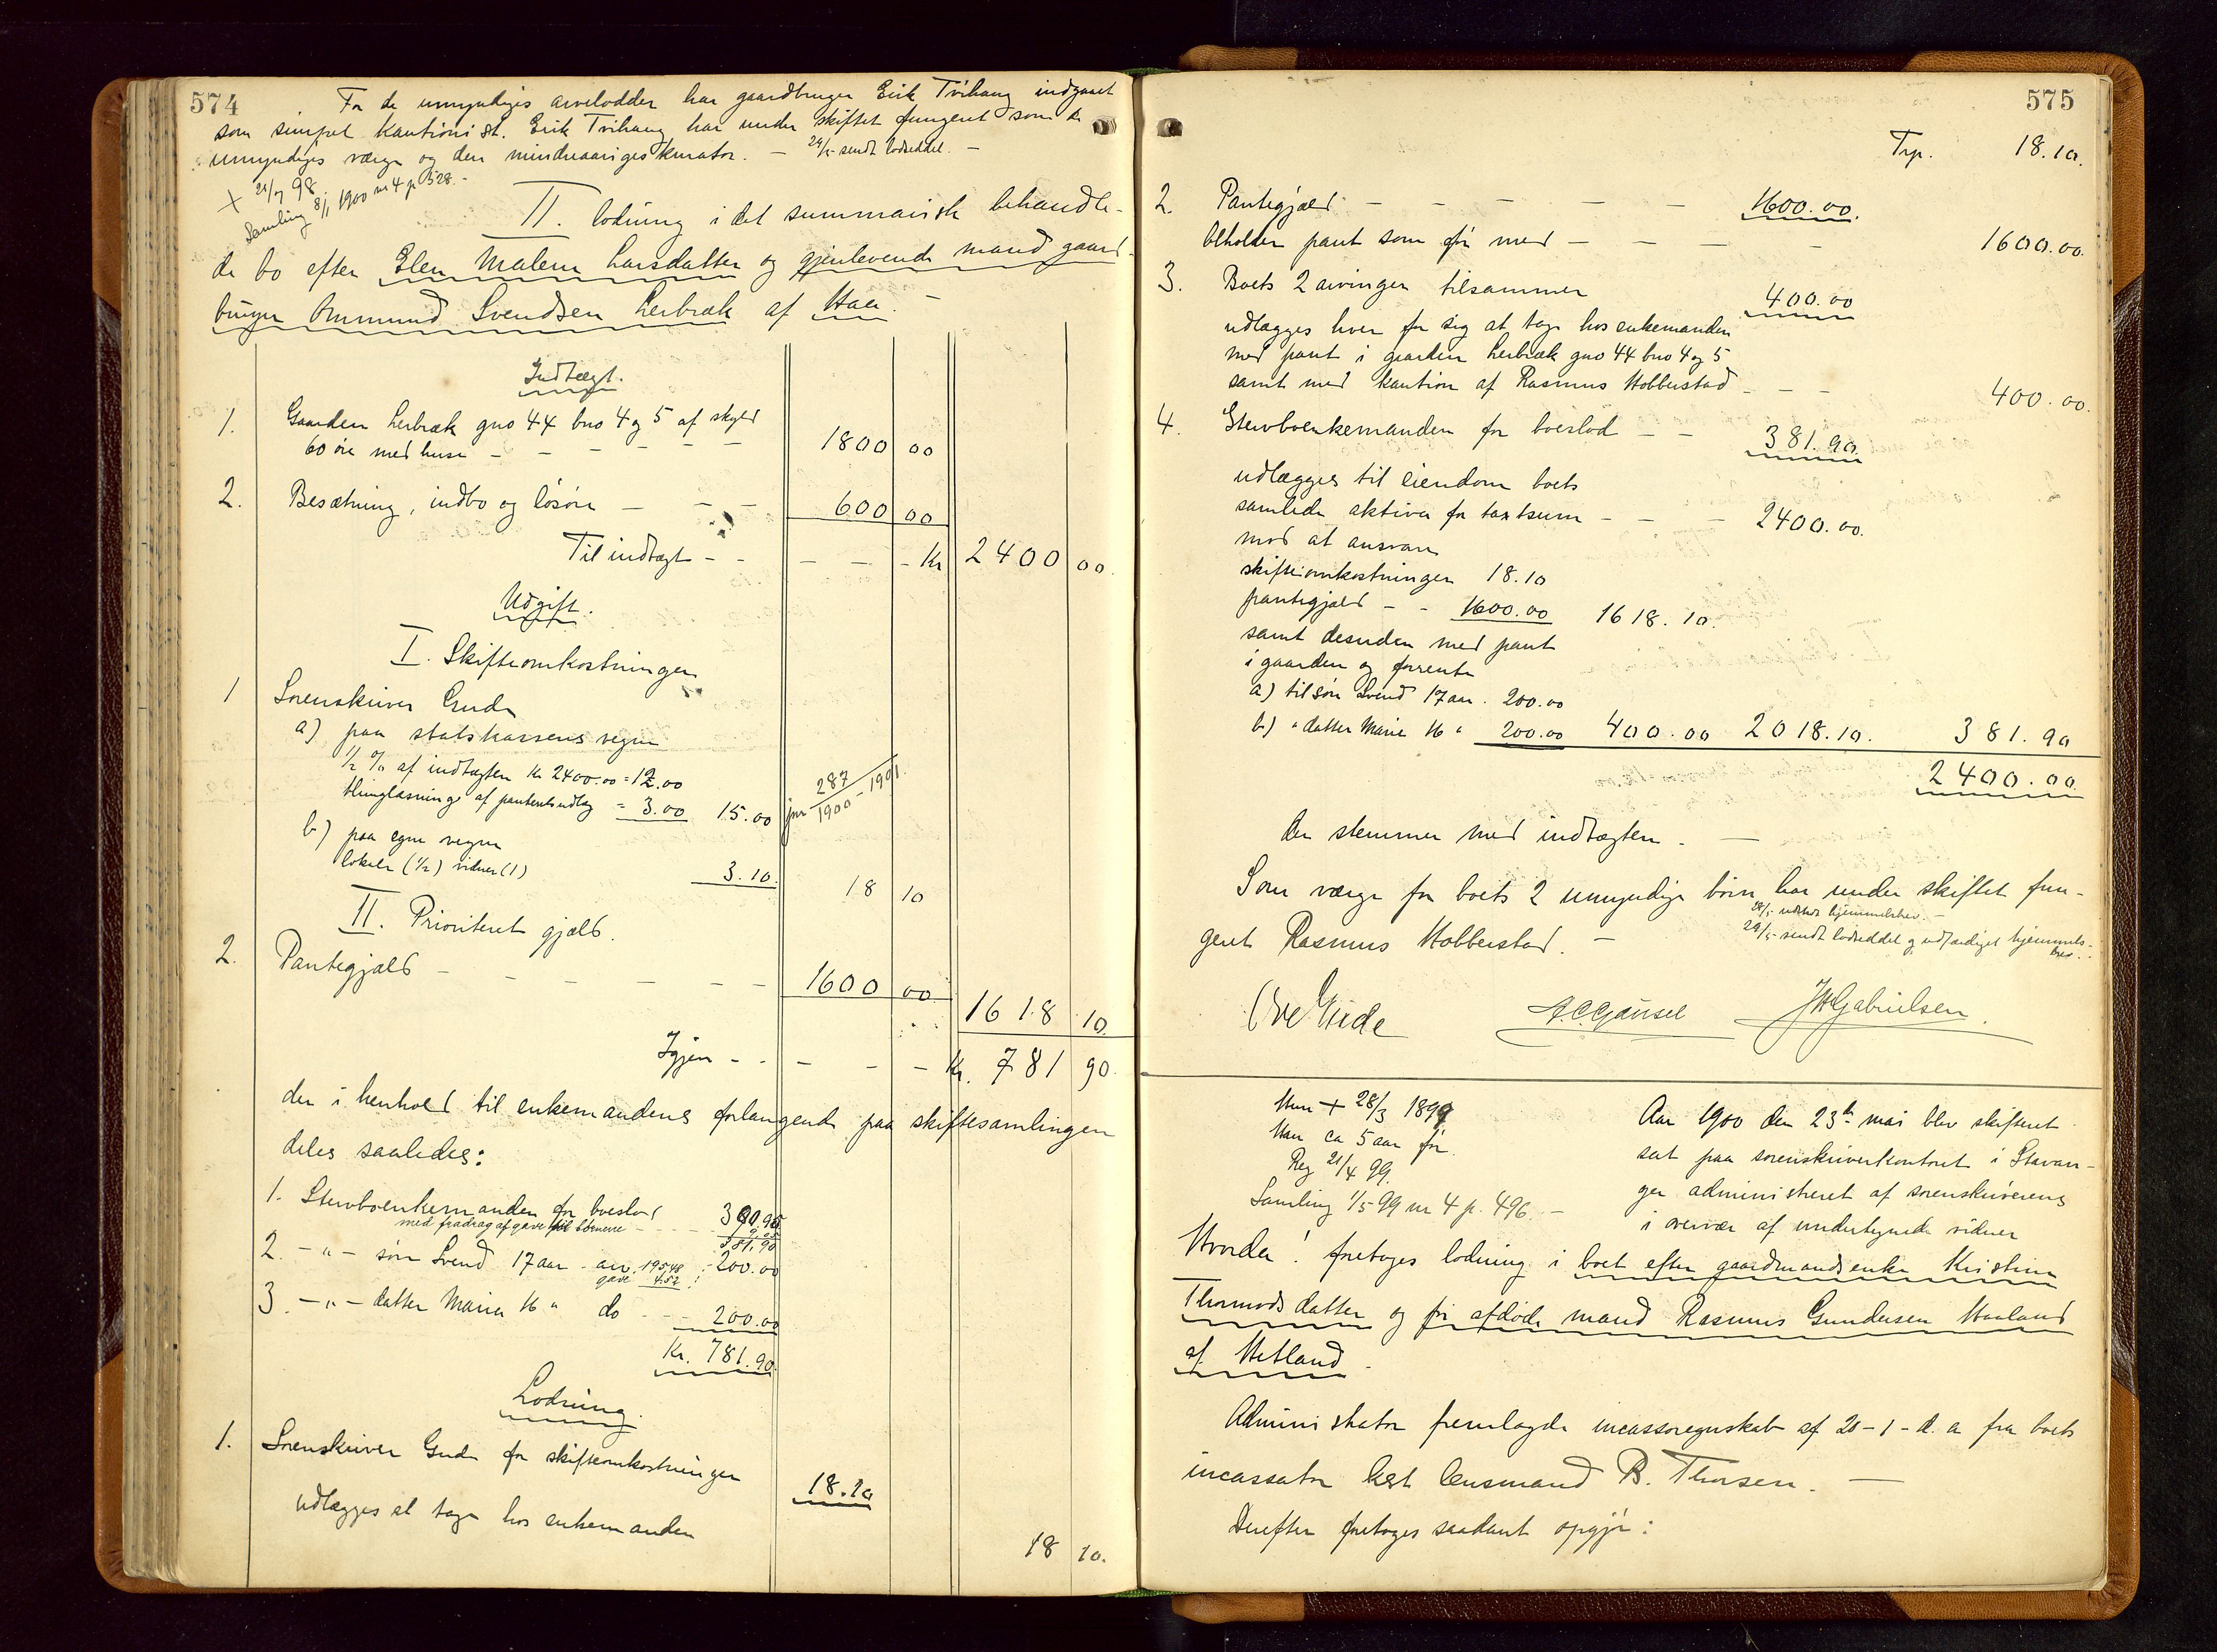 574
For de umyndiges arvelodder har gaardbruger Erik Tvihaug indgaaet
som simpel kautionist. Erik Tvihaug har under skiftet fungeret som de
umyndiges værge og den mindreaariges kurator. — 29/5 sendt lodseddel. —
+ 21/7 98
Samling 8/1 1900 nr 4 p 528.-
II. lodning i det summarisk behandle-
de bo efter Elen Malene Larsdatter og gjenlevende mand gaard-
bruger Ommund Svendsen Lerbræk af Haa. —
Indtægt.
1. Gaarden Lerbræk gno 44 bno 4 og 5 af skyld
60 øre med huse - - - - - 1800 00
2. Besætning, indbo og løsøre - - - 600 00
Til indtægt - - - - - Kr 2400 00.
Udgift.
I. Skifteomkostninger
1 Sorenskriver Gude
a) paa statskassens vegne
1/2 % af indtægten Kr 2400.00 = 12.00
thinglæsning af panteretsudlæg = 3.00 15.00 jnr 287/1900-1901.
b) paa egne vegne
lokale (1/2) vidner (1) 3.10. 18 10
II. Prioriteret gjæld.
2. Pantegjæld - - - - - 1600 00 1618 10
Igjen - - - - - Kr. 781 90.
der i henhold til enkemandens forlangende paa skiftesamlingen
deles saaledes:
1. Stervboenkemanden for boeslod 390.95
med fradrag af gave til børnene - - - 9.05
381.90
2. -"- søn Svend 17 aar - arv 195.48
gave 4.52 : 200.00
3. -"- datter Marie 16 " do - - 200.00
Kr. 781.90.
Lodning.
1. Sorenskriver Gude for skifteomkostninger 18.10
udlægges at tage hos enkemanden
18 10.
575
Trp. 18.10.
2. Pantegjæld - - - - - 1600.00.
beholder pant som før med - - - - 1600.00.
3. Boets 2 arvinger tilsammen 400.00
udlægges hver for sig at tage hos enkemanden
med pant i gaarden Lerbræk gno 44 bno 4 og 5
samt med kaution af Rasmus Hobberstad - - - 400.00.
4. Stervboenkemanden for boeslod - - 381.90.
udlægges til eiendom boets
samlede aktiva for taxtsum - - - 2400.00.
mod at ansvare
skifteomkostninger 18.10
pantegjæld - - 1600.00 1618.10.
samt desuden med pant
i gaarden og forrente
a) til søn Svend 17 aar. 200.00
b) " datter Marie 16 " 200.00 400.00 2018.10. 381.90
2400.00.
der stemmer med indtægten. —
Som værge for boets 2 umyndige børn har under skiftet fun-
29/5 sendt lodseddel og udfærdiget hjemmels-
brev.-
geret Rasmus Hobberstad. —
Ove Gude A.C. Gausel J H Gabrielsen.
Hun + 28/3 1899
Han ca 5 aar før.
Reg 21/4 99.
Samling 1/5 99 nr 4 p. 496. —
Aar 1900 den 23de mai blev skifteret
sat paa sorenskriverkontoret i Stavan-
ger administreret af sorenskriverens
i overvær af undertegnede vidner
Hvorda! foretoges lodning i boet efter gaardmandsenke Kristine
Thormodsdatter og før afdøde mand Rasmus Gundersen Haaland
af Hetland.
Administrator fremlagde incassoregnskab af 20-1-d. a fra boets
incassator kst lensmand B. Thorsen. —
Derefter foretoges saadant opgjør: